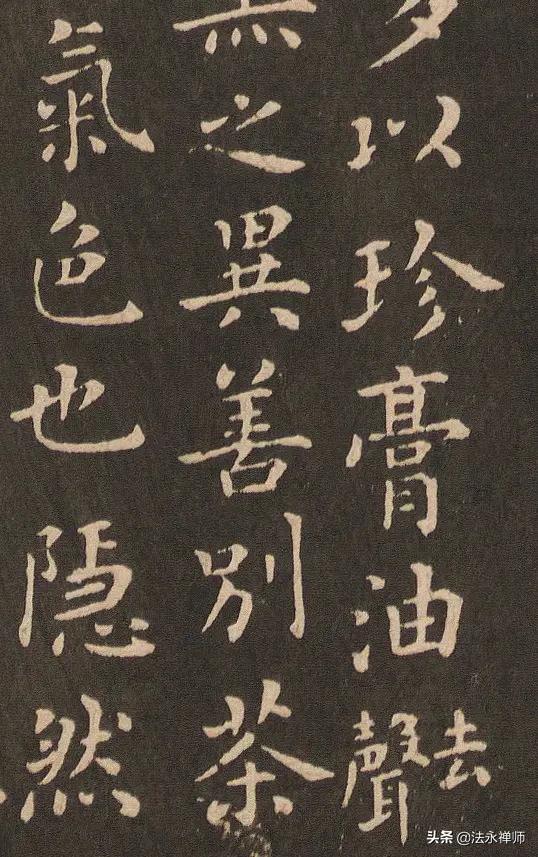 以珍膏油去聲
之異善別茶
氣色也隠然
头条 @法永禅师